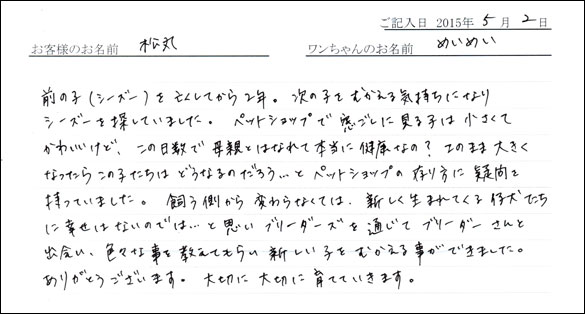 ご記入日 2015年 5月 2日
お客様のお名前 松丸 ワンちゃんのお名前 めいめい
前の子(シーズー)を亡くしてから2年。次の子をむかえる気持ちになり
シーズーを探していました。ペットショップで窓ごしに見る子は小さくて
かわいいけど、この日数で母親とはなれて本当に健康なの?このまま大きく
なったらこの子たちはどうなるのだろう…とペットショップの存り方に疑問を
持っていました。飼う側から変わらなくては、新しく生まれてくる仔犬たち
に幸せはないのでは…と思いブリーダーズを通じてブリーダーさんと
出会い、色々な事を教えてもらい新しい子をむかえる事ができました。
ありがとうございます。大切に大切に育てていきます。